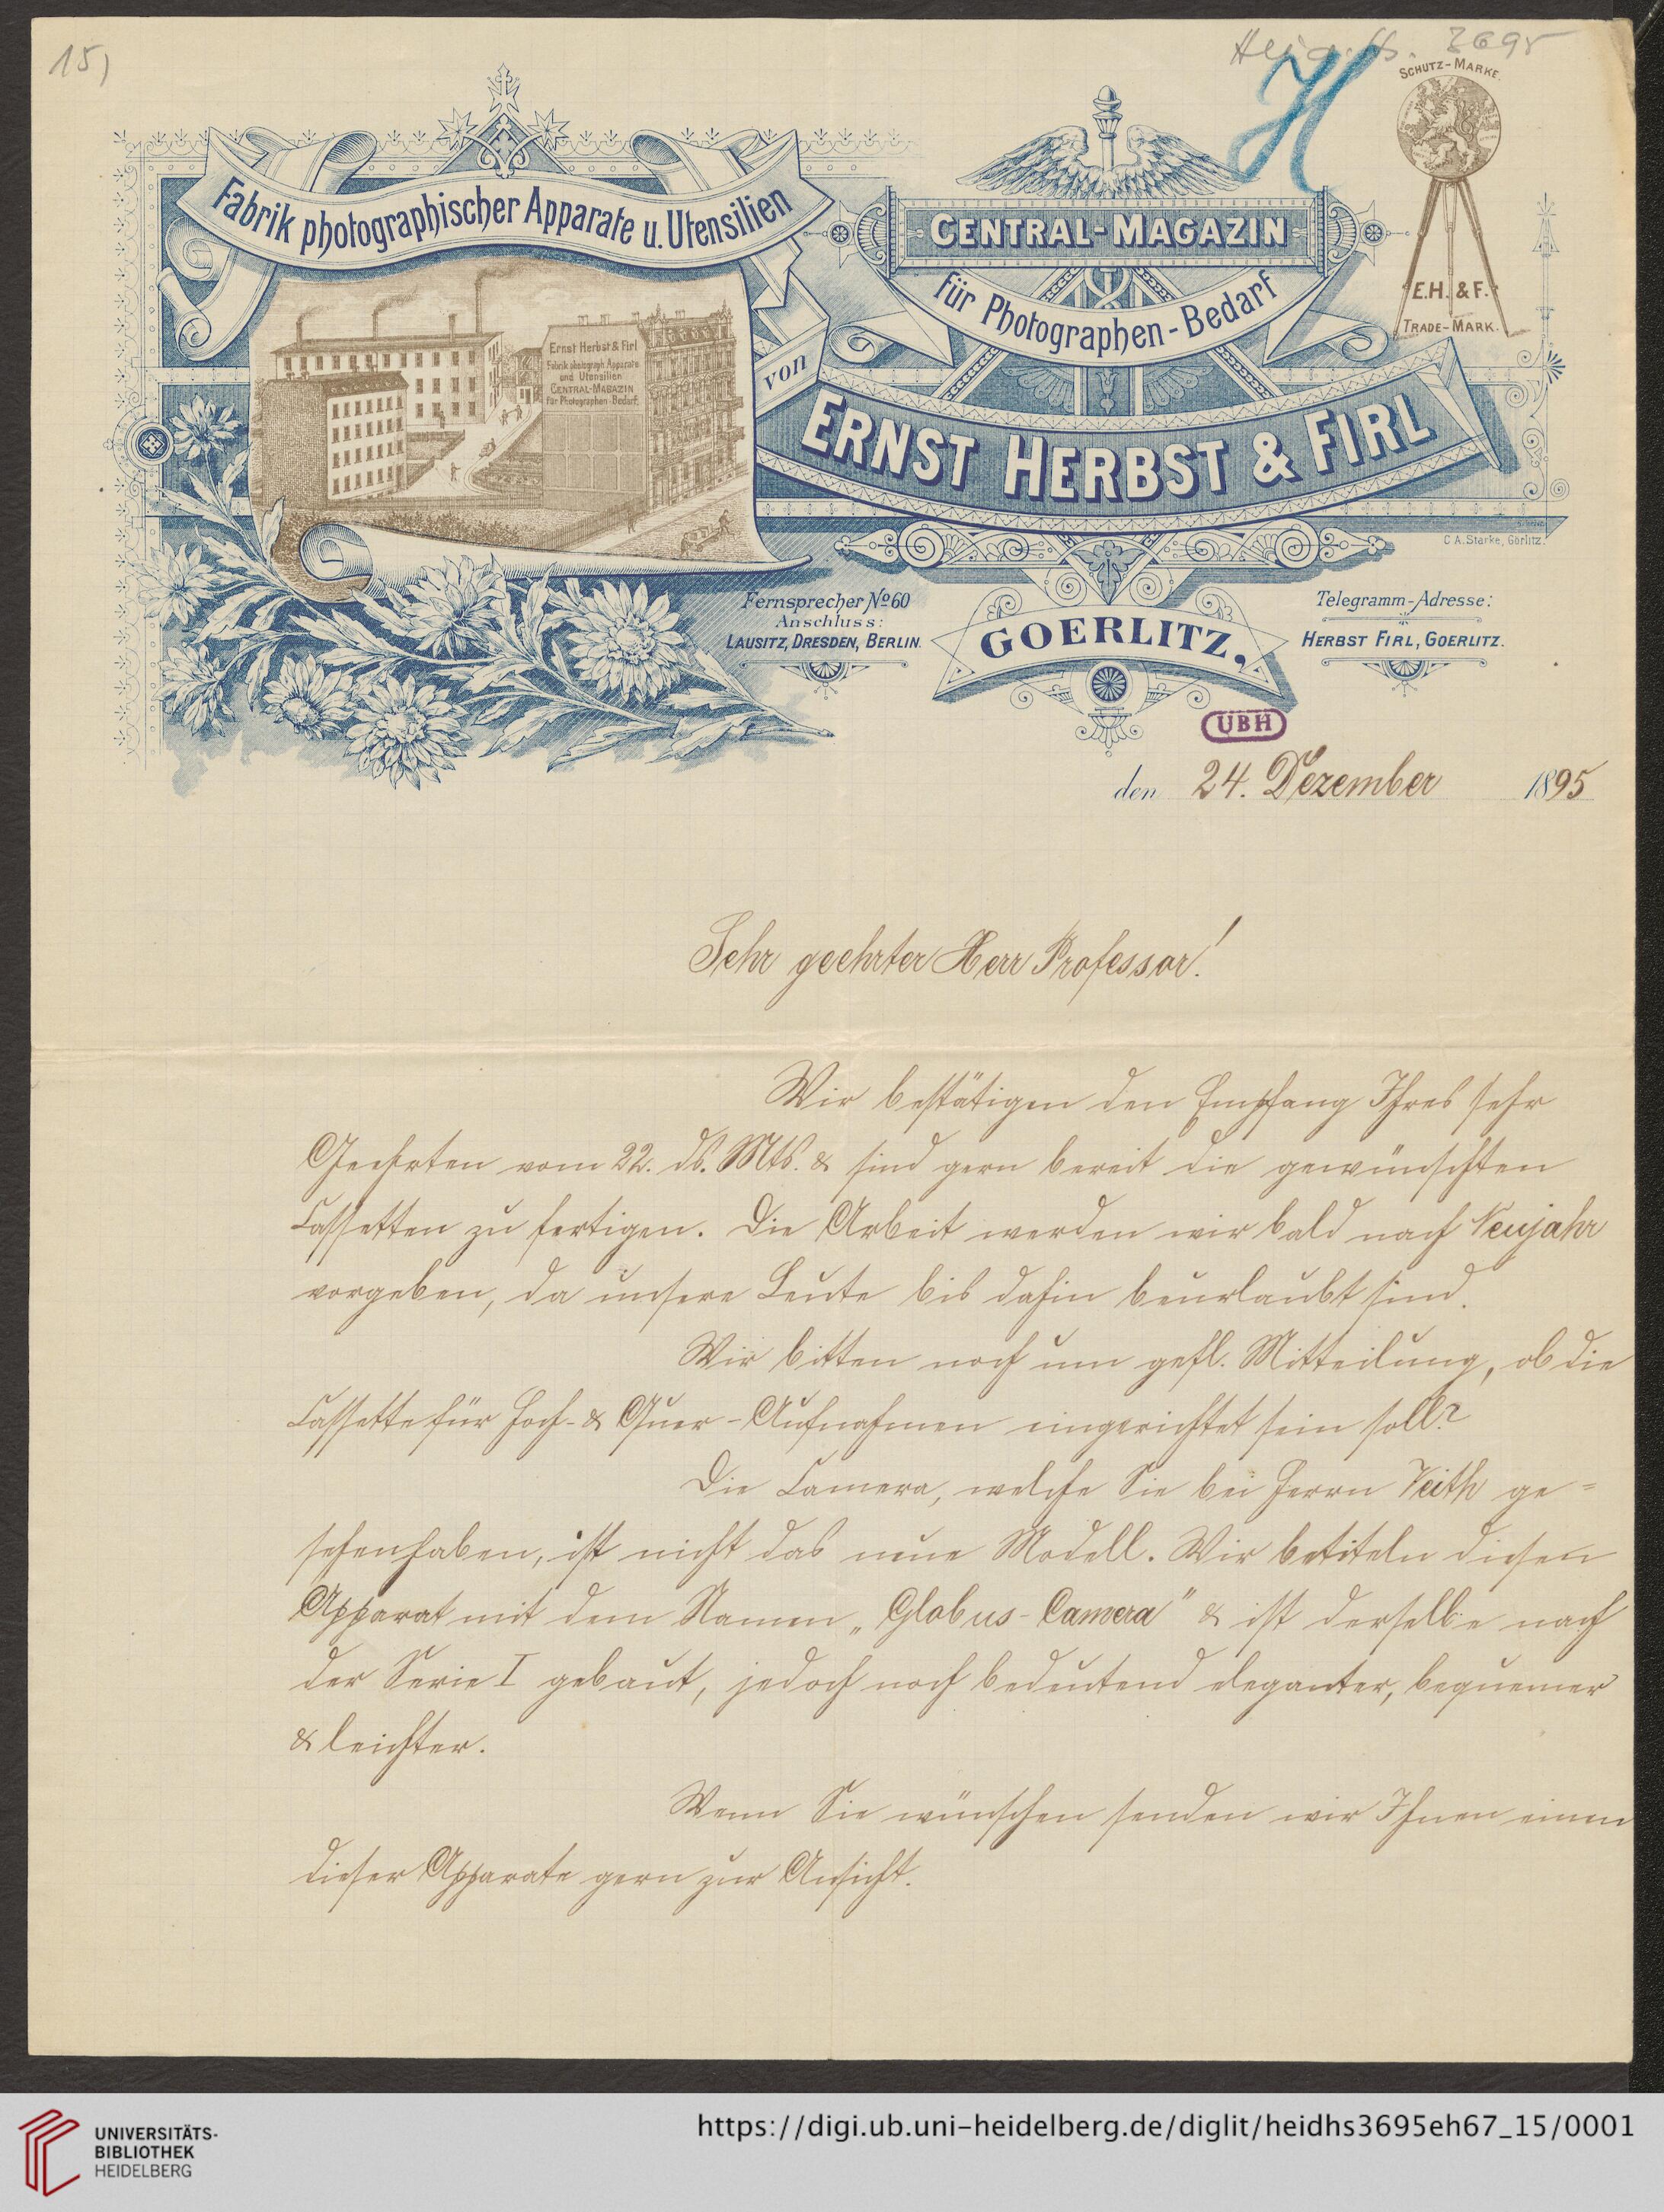 15)
Heid. Hs. 3695
H
SCHUTZ-MARKE.
E.H. & F.
TRADE-MARK.
Fabrik photographischer Apparate u. Utensilien
Ernst Herbst & Firl
Fabrik photograph. Apparate
und Utensilien
CENTRAL-MAGAZIN
für Photographen-Bedarf.
von
CENTRAL-MAGAZIN
für Photographen-Bedarf
ERNST HERBST & FIRL
C.A. Starke, Görlitz.
Fernsprecher No 60
Anschluss:
LAUSITZ, DRESDEN, BERLIN.
GOERLITZ,
Telegramm-Adresse:
HERBST FIRL, GOERLITZ.
UBH
den 24. Dezember 1895
Sehr geehrter Herr Professor!
Wir bestätigen den Empfang Ihres sehr
Geehrten vom 22. ds. Mts. & sind gern bereit die gewünschten
Cassetten zu fertigen. Die Arbeit werden wir bald nach Neujahr
vorgeben, da unsere Leute bis dahin beurlaubt sind.
Wir bitten noch um gefl. Mitteilung, ob die
Cassette für Hoch- & Quer-Aufnahmen eingerichtet sein soll?
Die Camera, welche Sie bei Herrn Veith ge=
sehen haben, ist nicht das neue Modell. Wir betiteln diesen
Apparat mit dem Namen „Globus-Camera" & ist derselbe nach
der Serie I gebaut, jedoch noch bedeutend eleganter, bequemer
& leichter.
Wenn Sie wünschen senden wir Ihnen einen
dieser Apparate gern zur Ansicht.
UNIVERSITÄTS-
BIBLIOTHEK
HEIDELBERG
https://digi.ub.uni-heidelberg.de/diglit/heidhs3695eh67_15/0001